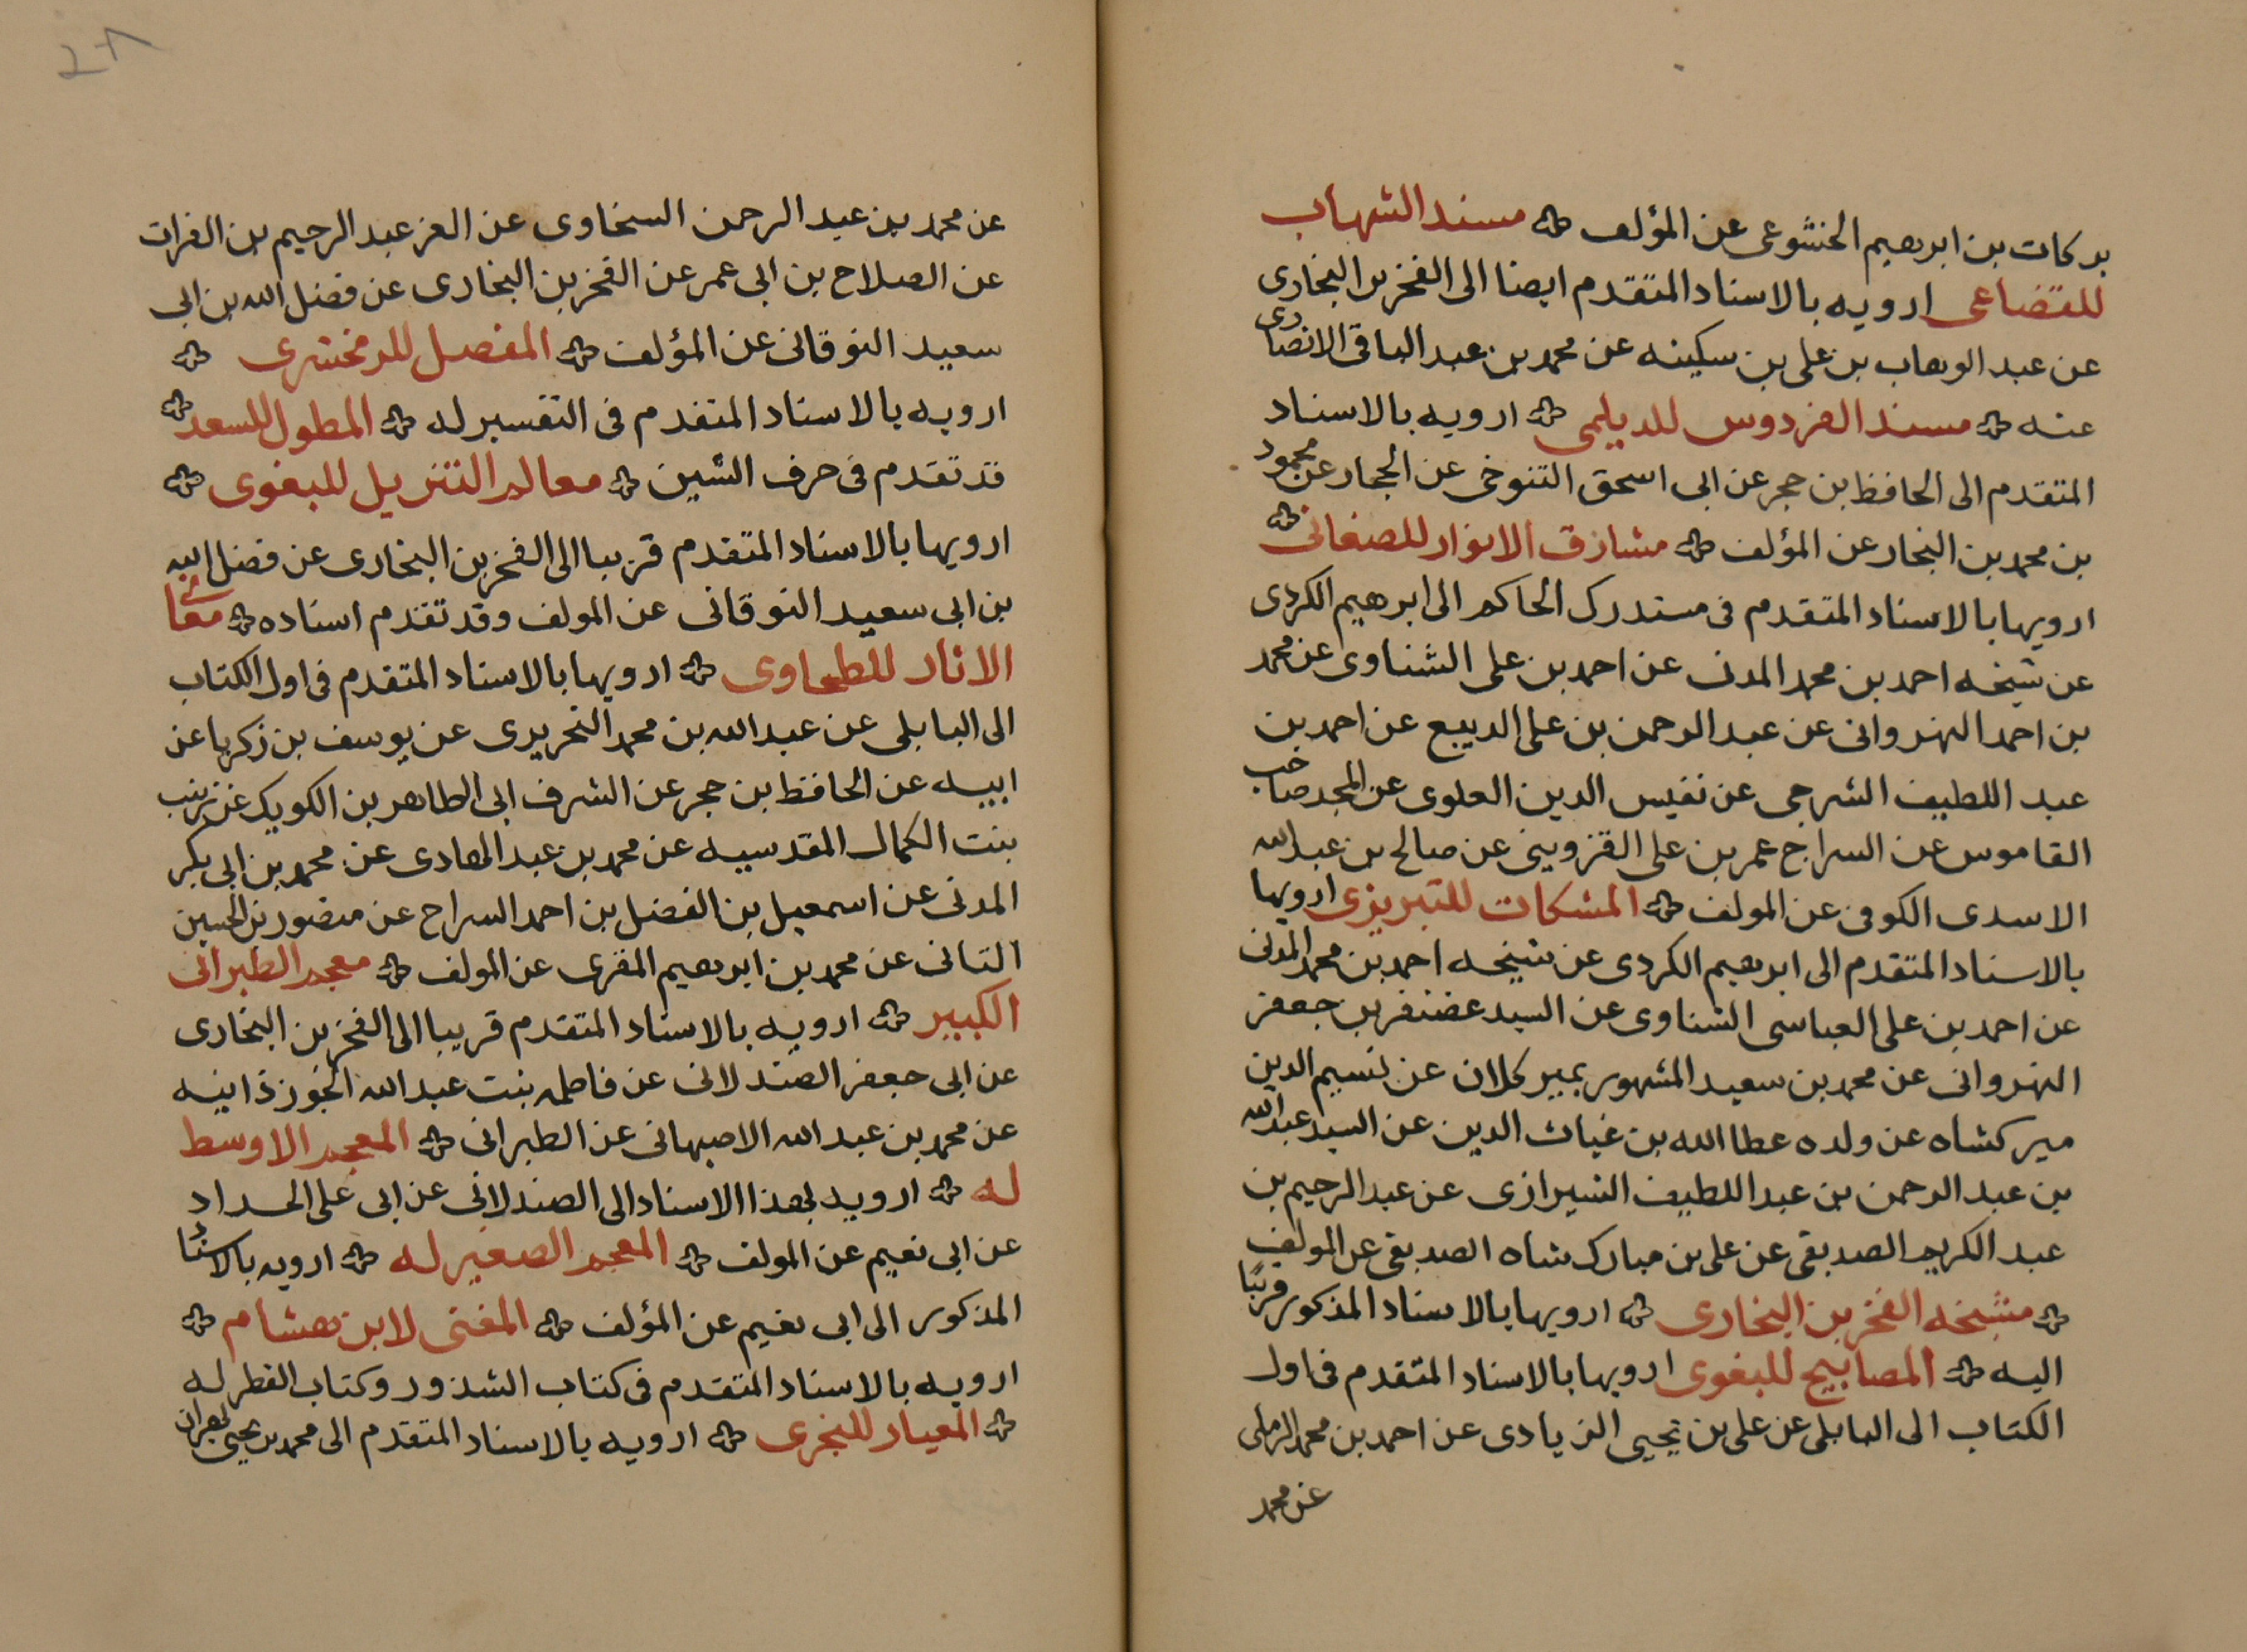 بركات بن ابرهيم الخشوعى عن المؤلف مسند الشهاب
للقضاعى ارويه بالاسناد المتقدم ايضا الى الفخر بن البخارى
عن عبد الوهاب بن على بن سكينه عن محمد بن عبد الباقى الانصارى
عنه مسند الفردوس للديلمى ارويه بالاسناد
المتقدم الى الحافظ بن حجر عن ابى اسحق التنوخى عن الحجار عن محمود
بن محمد بن النجار عن المؤلف مشارق الانوار للصغانى
ارويها بالاسناد المتقدم فى مستدرك الحاكم الى ابرهيم الكردى
عن شيخه احمد بن محمد المدنى عن احمد بن على الشناوى عن محمد
بن احمد النهروانى عن عبد الرحمن بن على الديبع عن احمد بن
عبد اللطيف الشرجى عن نفيس الدين العلوى عن المجد صاحب
القاموس عن السراج عمر بن على القزوينى عن صالح بن عبد الله
الاسدى الكوفى عن المولف المشكات للتبريزى ارويها
بالاسناد المتقدم الى ابرهيم الكردى عن شيخه احمد بن محمد المدنى
عن احمد بن على العباسى الشناوى عن السيد غضنفر بن جعفر
النهروانى عن محمد بن سعيد المشهور بمير كلان عن نسيم الدين
ميركشاه عن ولده عطا الله بن غياث الدين عن السيد عبد الله
بن عبد الرحمن بن عبد اللطيف الشيرازى عن عبد الرحيم بن
عبد الكريم الصديقى عن على بن مبارك شاه الصديقى عن المولف
مشيخه الفخر بن البخارى ارويها بالاسناد المذكور قريبًا
اليه المصابيح للبغوى ارويها بالاسناد المتقدم فى اول
الكتاب الى البابلى عن على بن يحيى الزيادى عن احمد بن محمد الرملى
عن محمد
عن محمد بن عبد الرحمن السخاوى عن العز عبد الرحيم بن الفرات
عن الصلاح بن ابى عمر عن الفخر بن البخارى عن فضل الله بن ابى
سعيد النوقانى عن المؤلف المفصل للزمخشرى
ارويه بالاسناد المتقدم فى التفسير له المطول للسعد
قد تقدم فى حرف الشين معالم التنزيل للبغوى
ارويها بالاسناد المتقدم قريبا الى الفخر بن البخارى عن فضل الله
بن ابى سعيد النوقانى عن المولف وقد تقدم اسناده معانى
الاثار للطحاوى ارويها بالاسناد المتقدم فى اول الكتاب
الى البابلى عن عبد الله بن محمد النحريرى عن يوسف بن زكريا عن
ابيه عن الحافظ بن حجر عن الشرف ابى الطاهر بن الكويك عن زينب
بنت الكمال المقدسيه عن محمد بن عبد الهادى عن محمد بن ابى بكر
المدنى عن اسمعيل بن الفضل بن احمد السراج عن منصور بن الحسين
التانى عن محمد بن ابرهيم المقرى عن المولف معجم الطبرانى
الكبير ارويه بالاسناد المتقدم قريبا الى الفخر بن البخارى
عن ابى جعفر الصندلانى عن فاطمه بنت عبد الله الجوزذانيه
عن محمد بن عبد الله الاصبهانى عن الطبرانى المعجم الاوسط
له ارويه بهذا الاسناد الى الصندلانى عن ابى على الحداد
عن ابى نعيم عن المولف المعجم الصغير له ارويه بالاسناد
المذكور الى ابى نعيم عن المؤلف المغنى لابن هشام
ارويه بالاسناد المتقدم فى كتاب الشذور وكتاب القطر له
المعيار للنجرى ارويه بالاسناد المتقدم الى محمد بن يحيى بهران